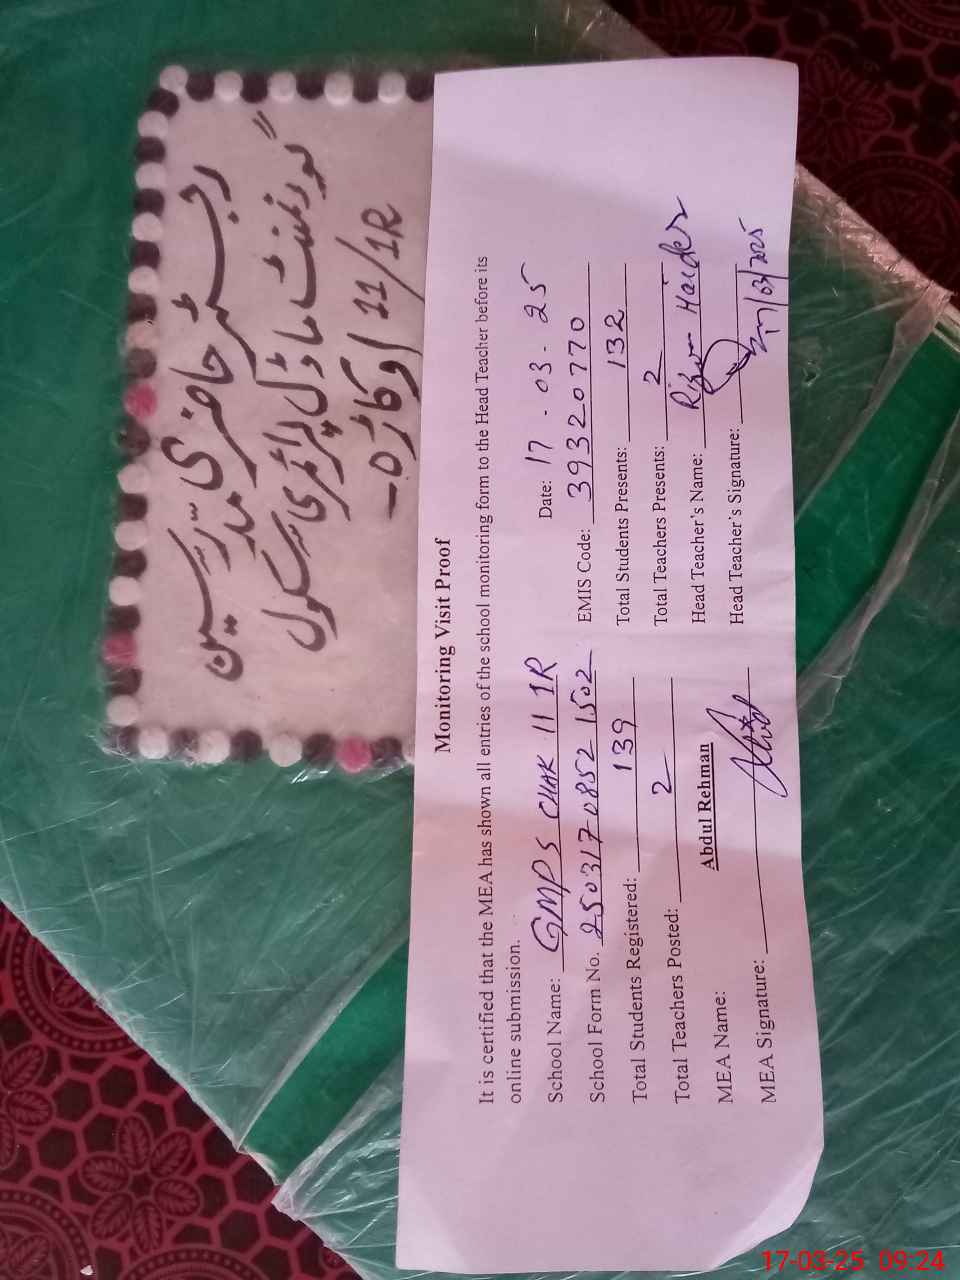 رجسٹر حاضری مدرسین
گورنمنٹ ماڈل پرائمری سکول
11/1R اوکاڑہ۔
Monitoring Visit Proof
It is certified that the MEA has shown all entries of the school monitoring form to the Head Teacher before its
online submission.
School Name: GMPS CHAK 11 1R Date: 17 - 03 - 25
School Form No. 250317 0852 1502 EMIS Code: 39320770
Total Students Registered: 139 Total Students Presents: 132
Total Teachers Posted: 2 Total Teachers Presents: 2
MEA Name: Abdul Rehman Head Teacher's Name: Rizwan Haider
MEA Signature: Head Teacher's Signature:
17/03/2025
17-03-25 09:24